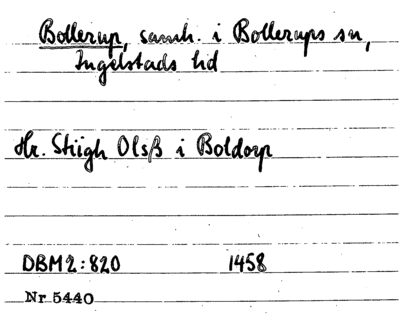 Bollerup, samh. i Bollerups sn,
Ingelstads hd
Hr. Stiigh Olsß i Boldorp
DBM2:820 1458
Nr 5440